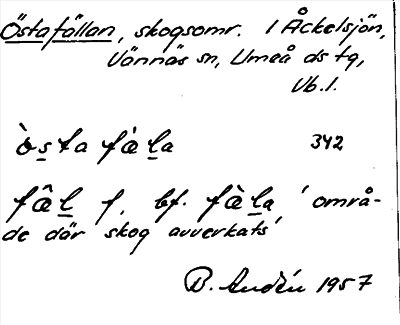 Östafällan, skogsomr. i Åckelsjön,
Vännäs sn, Umeå ds tg,
Vb. l.
ò̀sta fàla 342
fæ̂l f. bf. fæ̀la 'områ-
de där skog avverkats'
B. Audén 1957